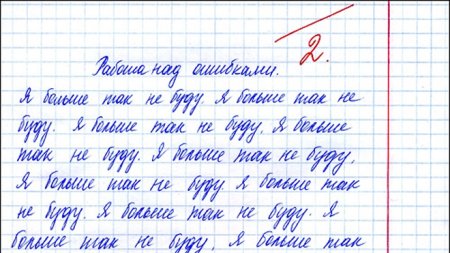 2.
Работа над ошибками.
Я больше так не буду. Я больше так не
буду. Я больше так не буду, Я больше
так не буду. Я больше так не буду,
Я больше так не буду Я больше так
не буду. Я больше так не буду. Я
больше так не буду, Я больше так